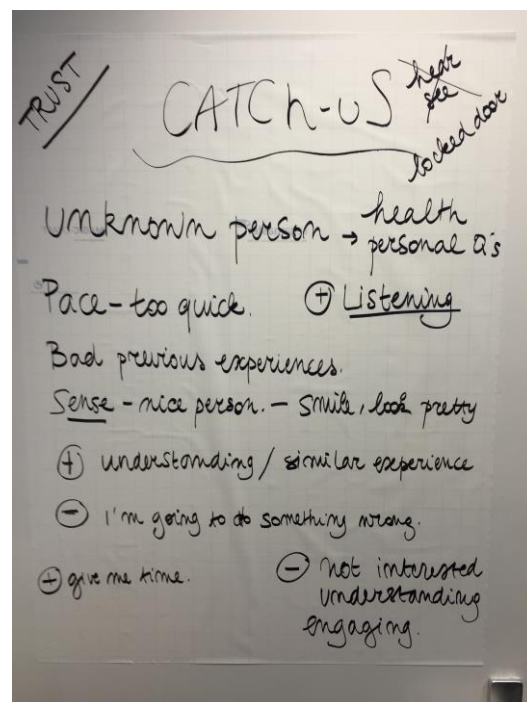 TRUST
CATCh-uS
hear
see
locked door
unknown person → health
personal Q's
Pace - too quick. + Listening
Bad previous experiences.
Sense - nice person. - Smile, look pretty
+ understanding / similar experience
- I'm going to do something wrong.
+ give me time.
- not interested
understanding
engaging.